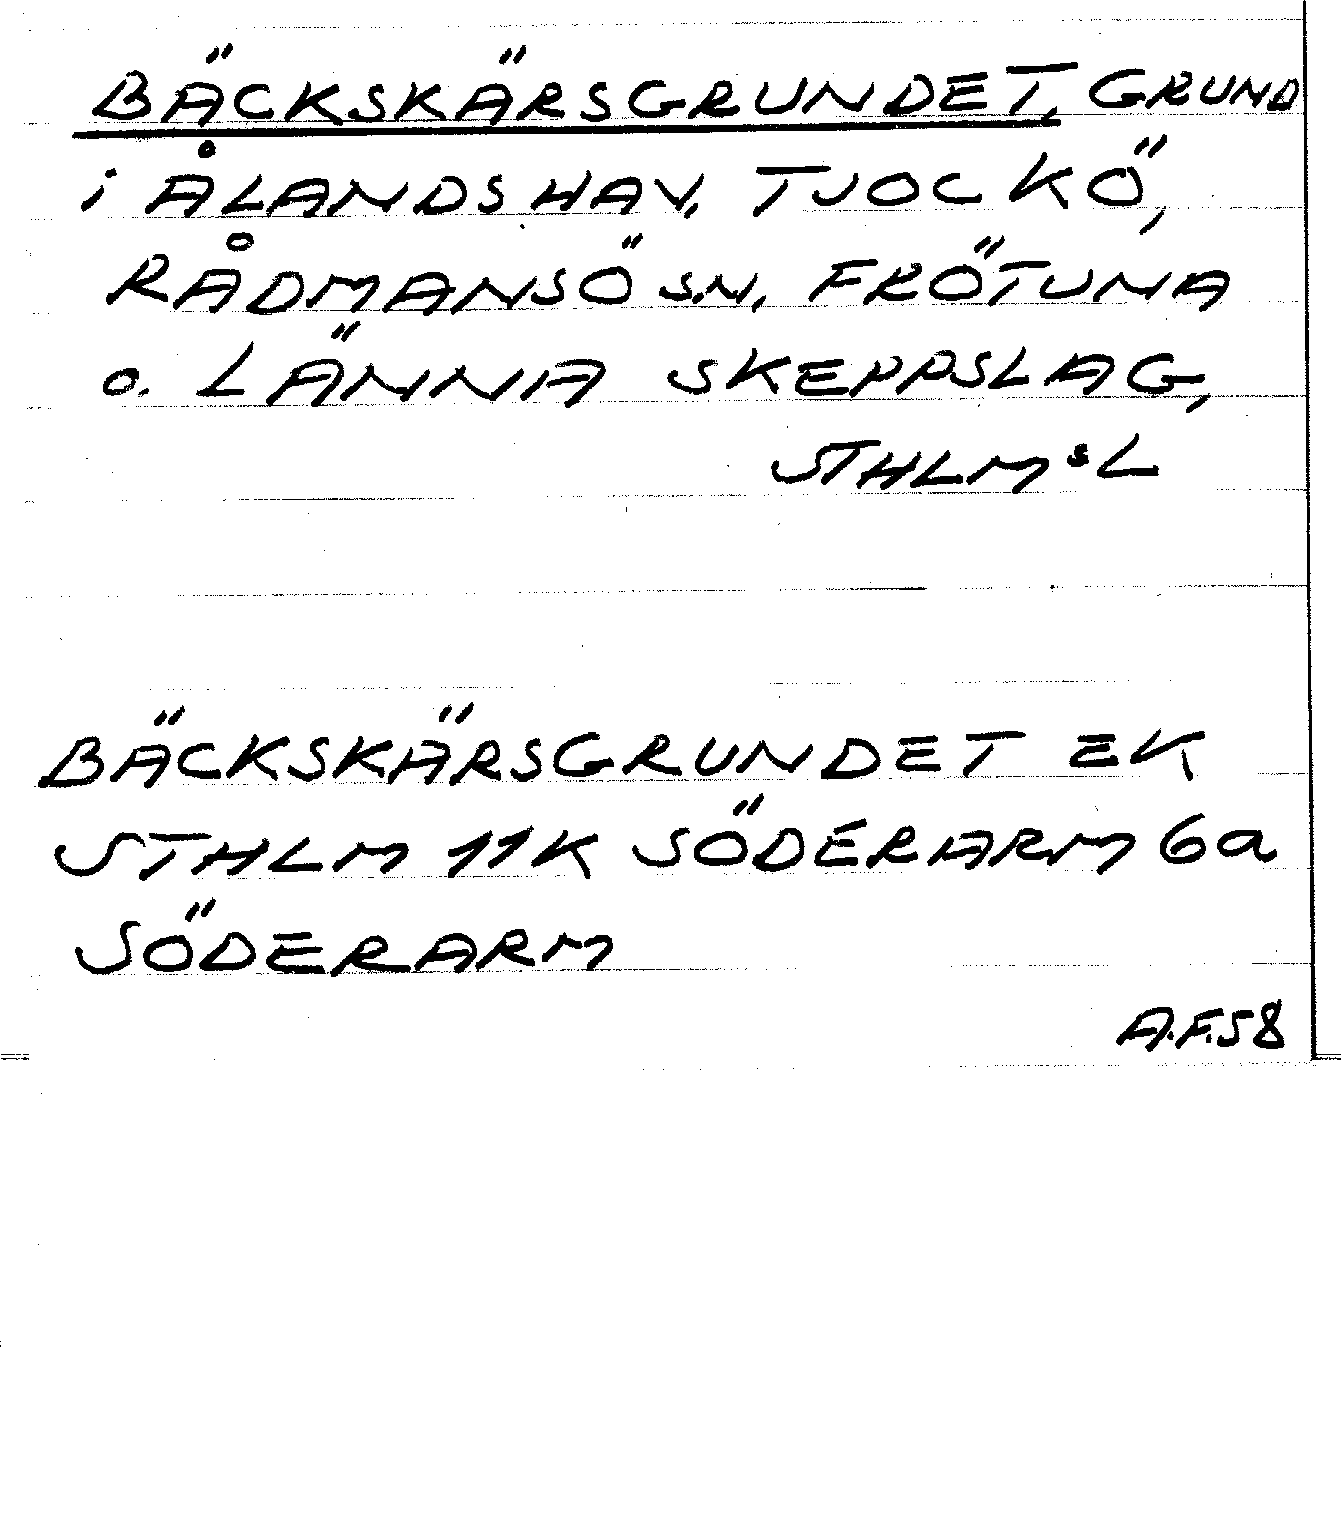 BÄCKSKÄRSGRUNDET, GRUND
i ÅLANDSHAV, TJOCKÖ,
RÅDMANSÖ SN, FRÖTUNA
o. LÄNNA SKEPPSLAG,
STHLMsL
BÄCKSKÄRSGRUNDET EK
STHLM 11K SÖDERARM 6a
SÖDERARM
A.F.58